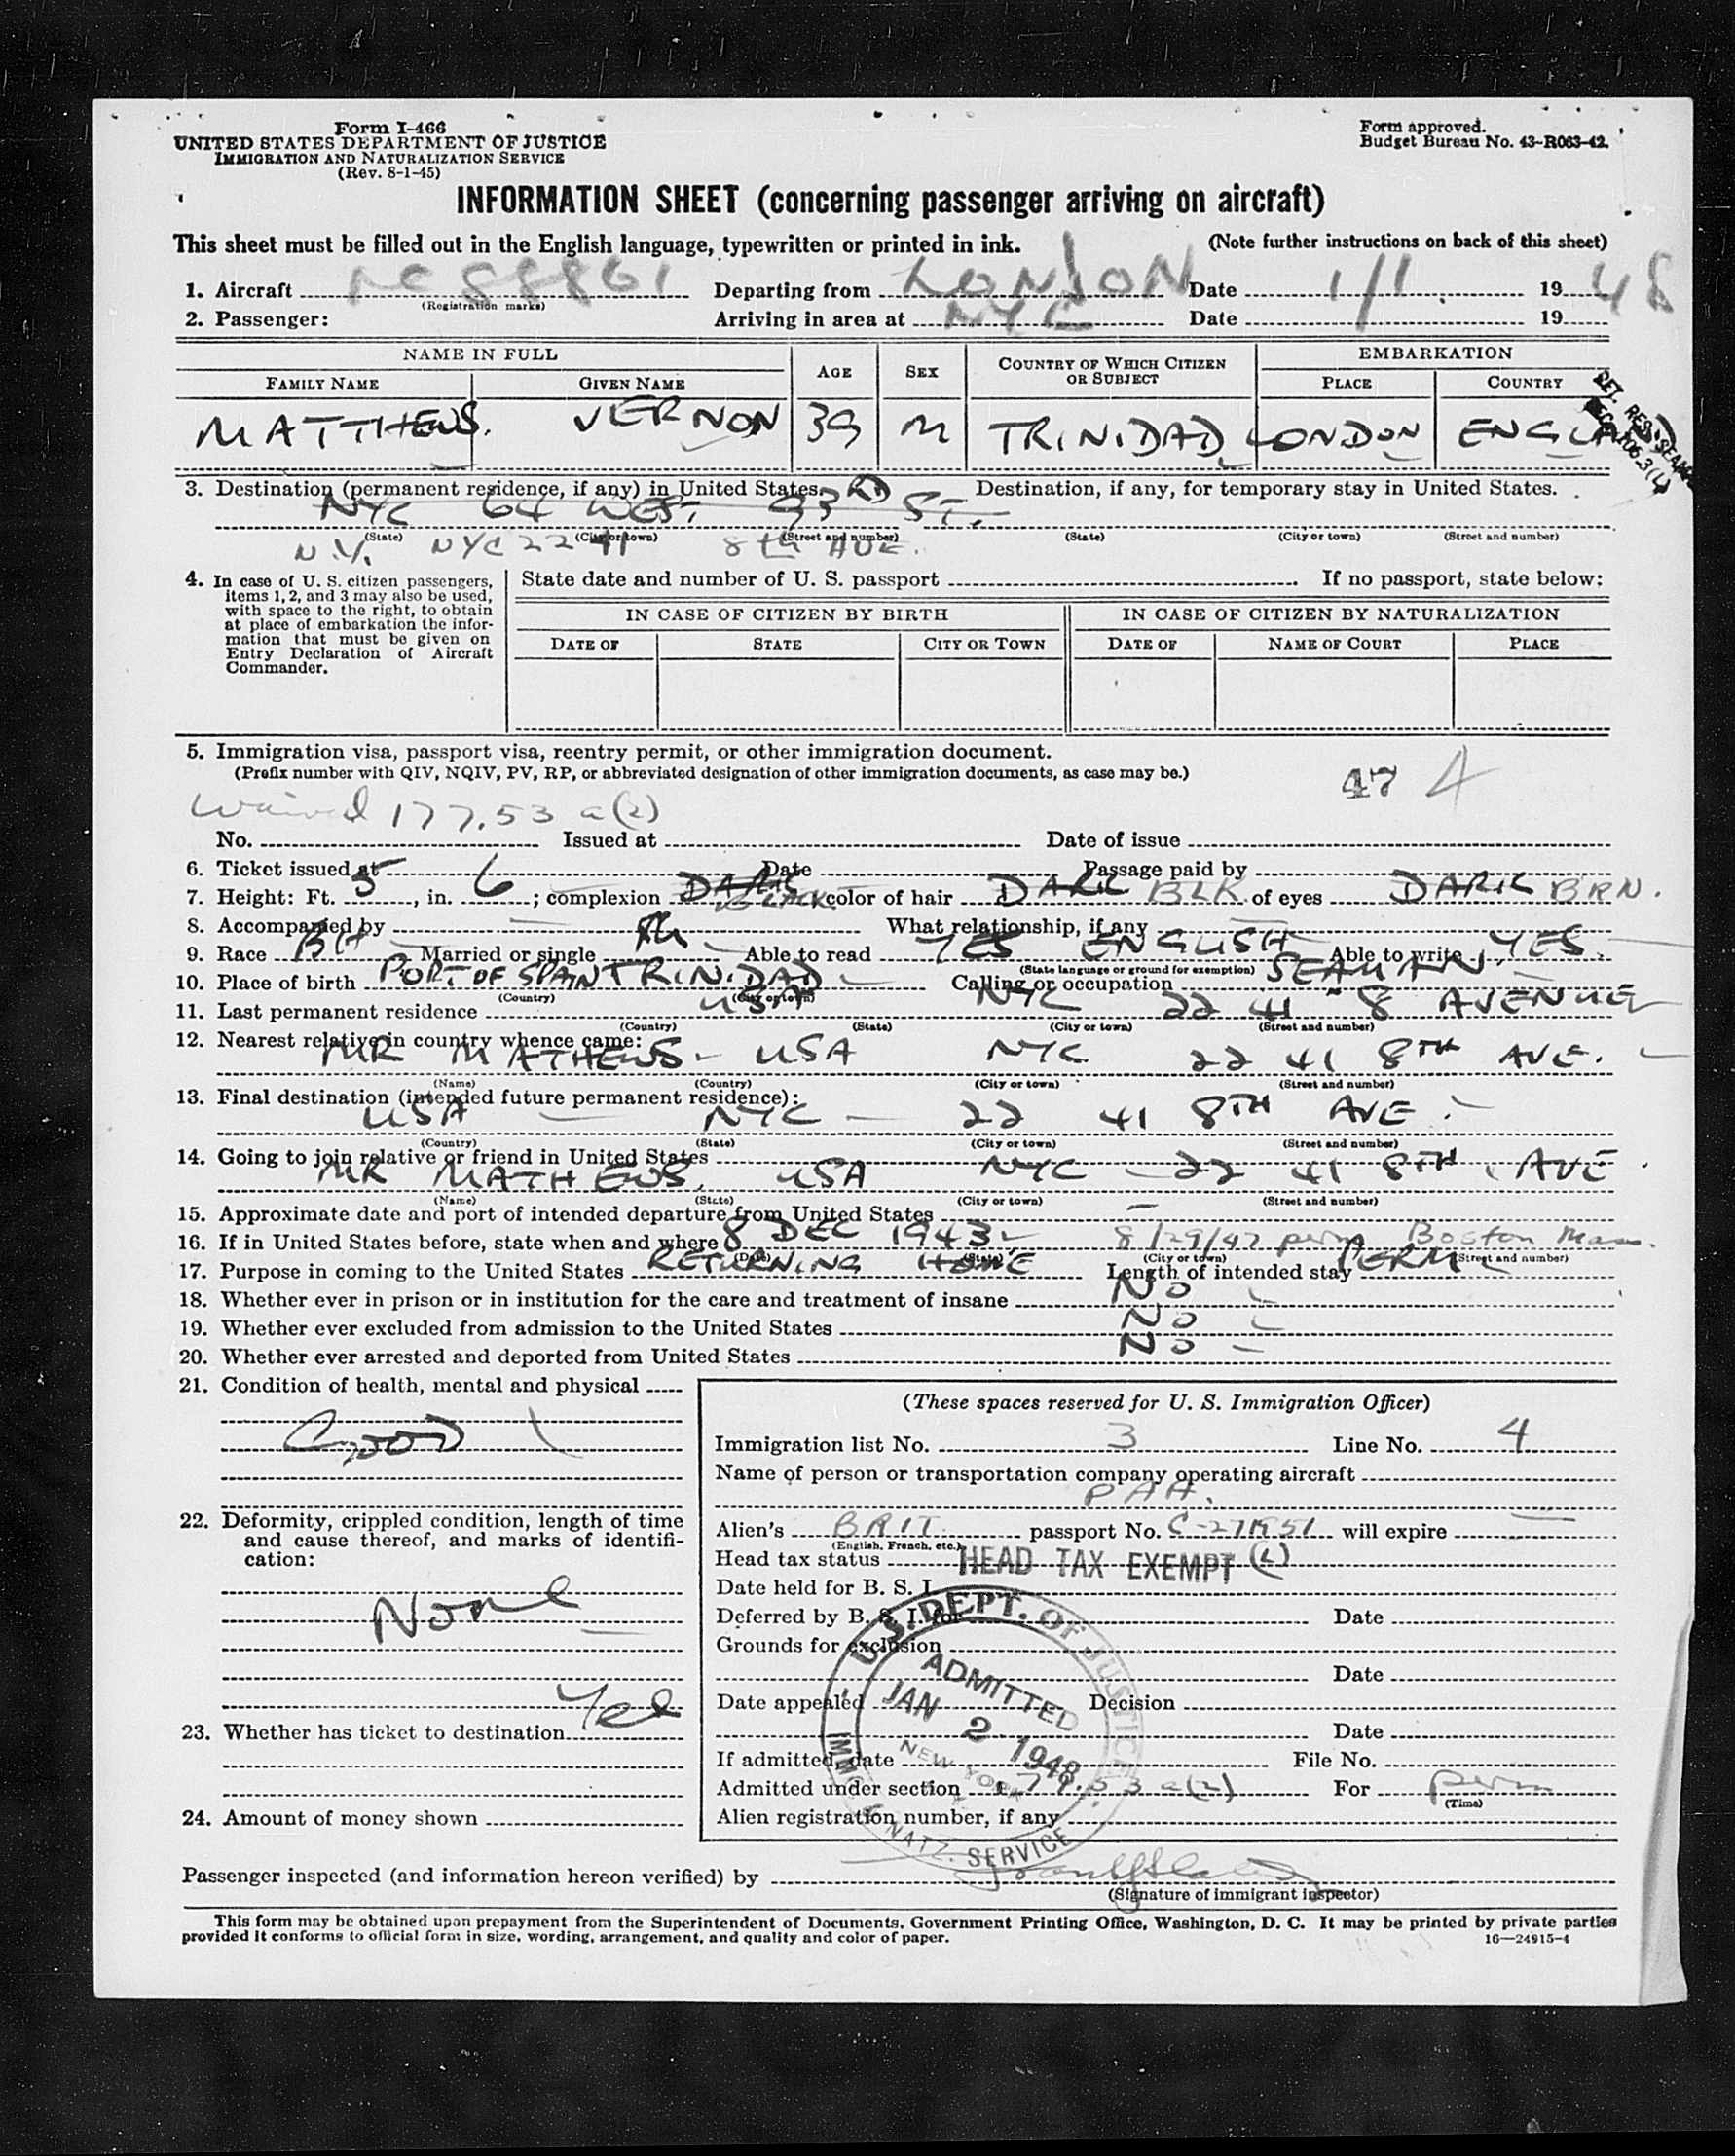 Form I-466
UNITED STATES DEPARTMENT OF JUSTICE
IMMIGRATION AND NATURALIZATION SERVICE
(Rev. 8-1-45)
Form approved.
Budget Bureau No. 43-R063-42.
INFORMATION SHEET (concerning passenger arriving on aircraft)
This sheet must be filled out in the English language, typewritten or printed in ink. (Note further instructions on back of this sheet)
1. Aircraft NC 88861 Departing from LONDON Date 1/1 1948
(Registration marks)
2. Passenger: Arriving in area at NYC Date 19
NAME IN FULL AGE SEX COUNTRY OF WHICH CITIZEN OR SUBJECT EMBARKATION
FAMILY NAME GIVEN NAME PLACE COUNTRY
MATTHEWS. VERNON 39 M TRINIDAD LONDON ENGLAND
RET. RES. SEAMAN
3. Destination (permanent residence, if any) in United States. Destination, if any, for temporary stay in United States.
NYC 64 WEST 93RD ST.
(State) (City or town) (Street and number) (State) (City or town) (Street and number)
N.Y. NYC 2241 8th AVE.
4. In case of U. S. citizen passengers, items 1, 2, and 3 may also be used, with space to the right, to obtain at place of embarkation the information that must be given on Entry Declaration of Aircraft Commander.
State date and number of U. S. passport If no passport, state below:
IN CASE OF CITIZEN BY BIRTH IN CASE OF CITIZEN BY NATURALIZATION
DATE OF STATE CITY OR TOWN DATE OF NAME OF COURT PLACE
5. Immigration visa, passport visa, reentry permit, or other immigration document.
(Prefix number with QIV, NQIV, PV, RP, or abbreviated designation of other immigration documents, as case may be.) 47 4
Waived 177.53 a(2)
No. Issued at Date of issue
6. Ticket issued at Date Passage paid by
7. Height: Ft. 5, in. 6; complexion DARK BLACK color of hair DARK BLK of eyes DARK BRN.
8. Accompanied by What relationship, if any
9. Race Married or single Able to read YES ENGLISH Able to write YES.
(State language or ground for exemption)
10. Place of birth PORT OF SPAIN TRINIDAD Calling or occupation SEAMAN
(Country) (City or town)
11. Last permanent residence USA NYC 22 41 - 8 AVENUE
(Country) (State) (City or town) (Street and number)
12. Nearest relative in country whence came:
MR MATHEWS - USA NYC 22 41 8TH AVE.
(Name) (Country) (City or town) (Street and number)
13. Final destination (intended future permanent residence):
USA NYC 22 41 8TH AVE.
(Country) (State) (City or town) (Street and number)
14. Going to join relative or friend in United States
MR MATHEWS, USA NYC 22 41 8TH AVE
(Name) (State) (City or town) (Street and number)
15. Approximate date and port of intended departure from United States
16. If in United States before, state when and where 8 DEC 1943 8/29/47 perm Boston Mass.
(Date) (State) (City or town) (Street and number)
17. Purpose in coming to the United States RETURNING HOME Length of intended stay PERM
18. Whether ever in prison or in institution for the care and treatment of insane NO
19. Whether ever excluded from admission to the United States NO
20. Whether ever arrested and deported from United States NO
21. Condition of health, mental and physical
GOOD
22. Deformity, crippled condition, length of time and cause thereof, and marks of identification:
None
23. Whether has ticket to destination Yes
24. Amount of money shown
(These spaces reserved for U. S. Immigration Officer)
Immigration list No. 3 Line No. 4
Name of person or transportation company operating aircraft
PAA.
Alien's BRIT passport No. C-271951 will expire
(English, French, etc.)
Head tax status HEAD TAX EXEMPT (L)
Date held for B. S. I.
Deferred by B. S. I. for Date
Grounds for exclusion
Date
Date appealed Decision
Date
If admitted, date File No.
Admitted under section 177.53 a(2) For perm
(Time)
Alien registration number, if any
U.S. DEPT. OF JUSTICE
ADMITTED
JAN 2 1948
NEW YORK
IMM. & NATZ. SERVICE
Passenger inspected (and information hereon verified) by
(Signature of immigrant inspector)
This form may be obtained upon prepayment from the Superintendent of Documents, Government Printing Office, Washington, D. C. It may be printed by private parties
provided it conforms to official form in size, wording, arrangement, and quality and color of paper. 16—24915-4